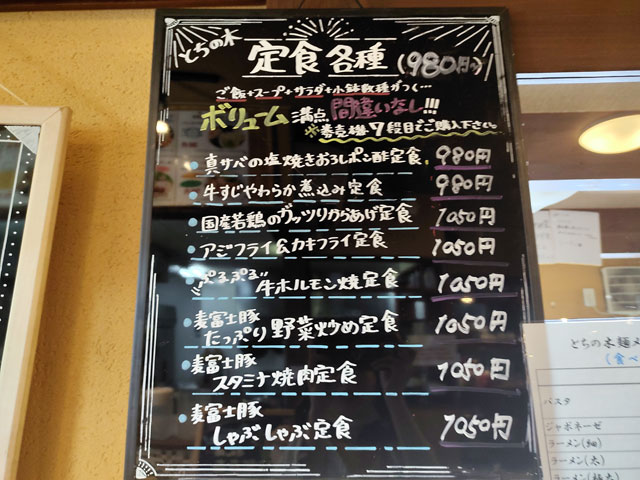 とちの木
定食各種(980円〜)
ご飯+スープ+サラダ+小鉢数種がつく…
ボリューム満点 間違いなし!!!
※券売機7段目でご購入下さい。
真サバの塩焼きおろしポン酢定食 980円
牛すじやわらか煮込み定食 980円
国産若鶏のガッツリからあげ定食 1050円
アジフライ&カキフライ定食 1050円
"ぷるぷる"
牛ホルモン焼定食 1050円
麦富士豚
たっぷり野菜炒め定食 1050円
麦富士豚
スタミナ焼肉定食 1050円
麦富士豚
しゃぶしゃぶ定食 1050円
とちの木麺メ
(食べ
パスタ
ジャポネーゼ
ラーメン(細)
ラーメン(太)